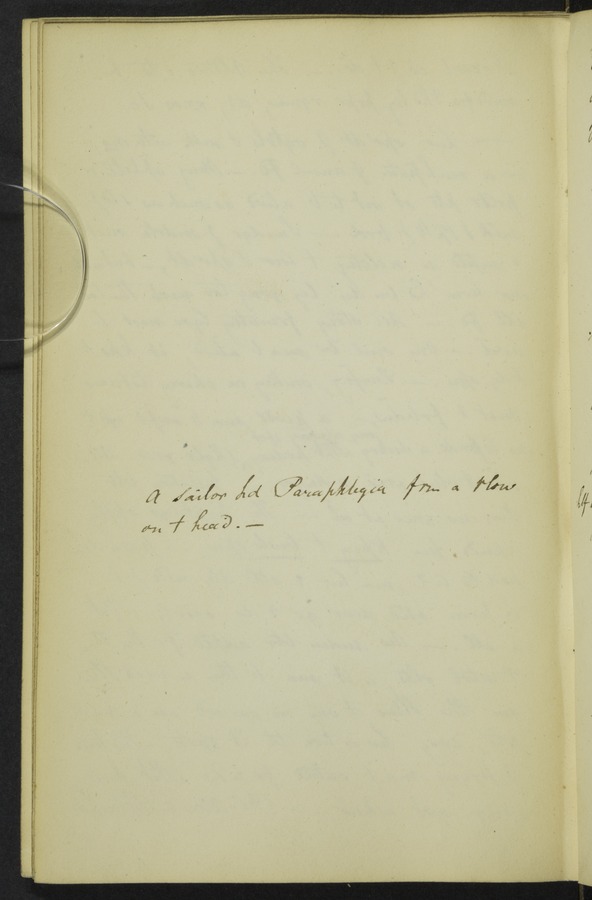 A Sailor hd Paraphlegia from a blow
on t head. —